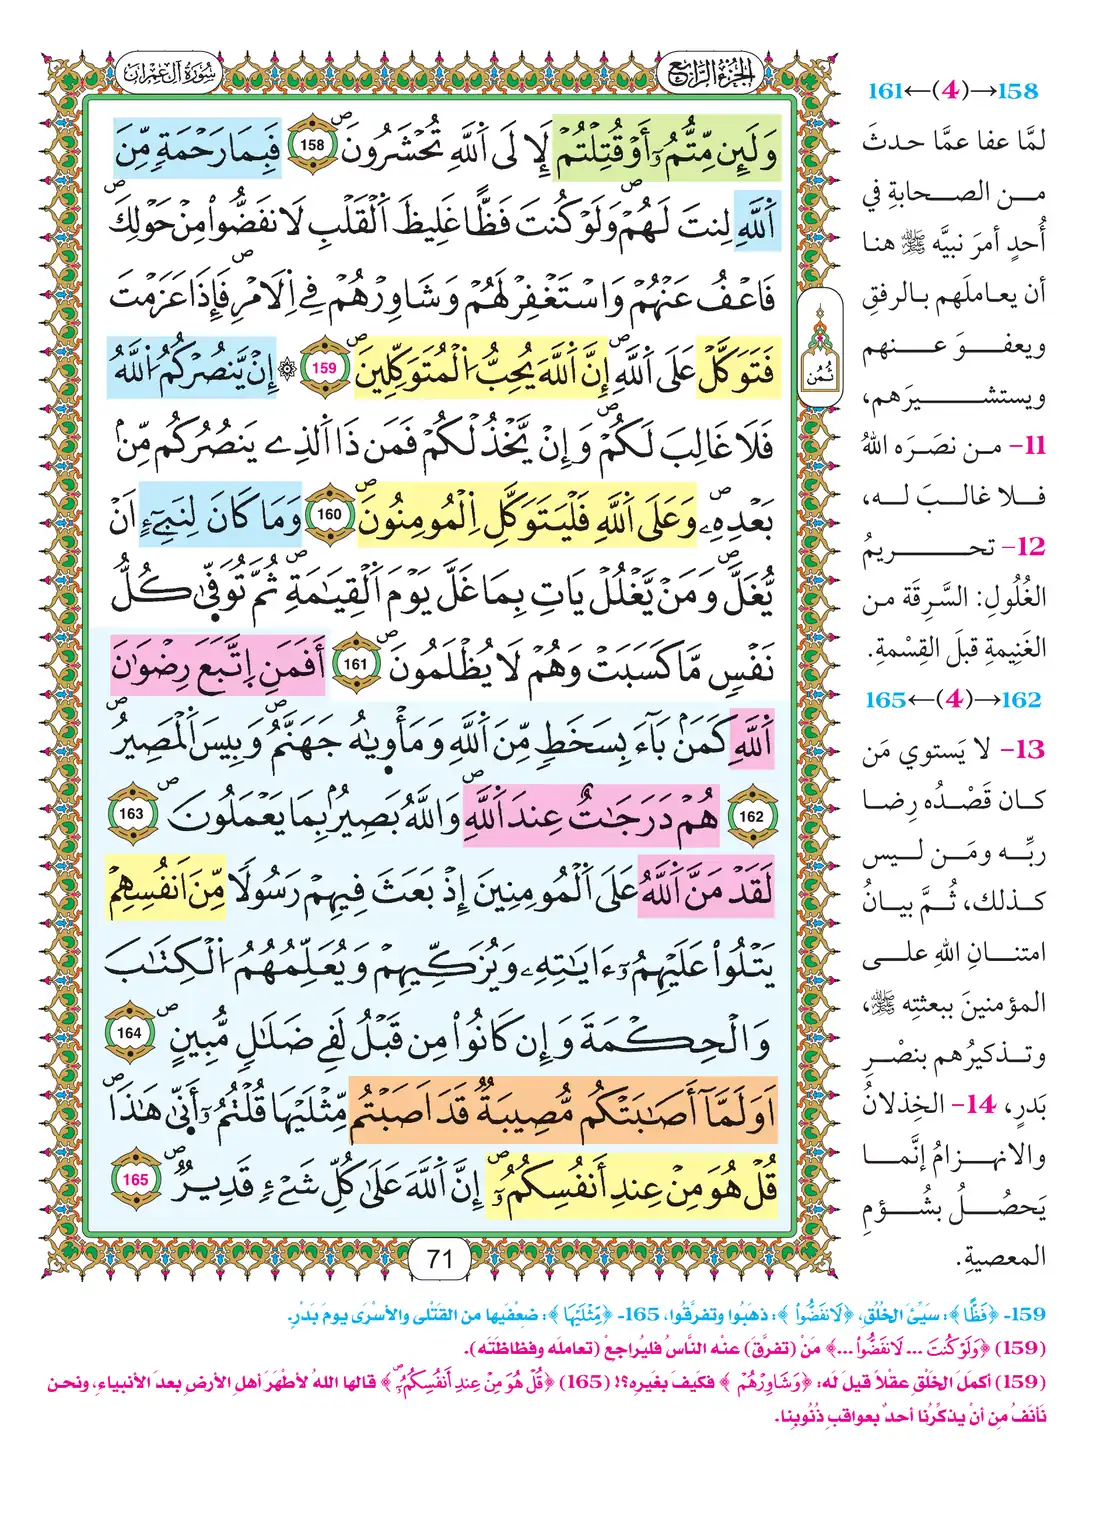 سُورَةُ آلِ عِمْرَانَ
الجُزْءُ الرَّابِعُ
وَلَئِن مِّتُّمُۥٓ أَوْ قُتِلْتُمْ لَإِلَى اَللَّهِ تُحْشَرُونَۖ 158 فَبِمَا رَحْمَةٖ مِّنَ
اَللَّهِ لِنتَ لَهُمْۖ وَلَوْ كُنتَ فَظّاً غَلِيظَ اَلْقَلْبِ لَانفَضُّواْ مِنْ حَوْلِكَۖ
فَاعْفُ عَنْهُمْ وَاسْتَغْفِرْ لَهُمْ وَشَاوِرْهُمْ فِے اِلَامْرِۖ فَإِذَا عَزَمْتَ
فَتَوَكَّلْ عَلَى اَللَّهِۖ إِنَّ اَللَّهَ يُحِبُّ اُلْمُتَوَكِّلِينَۖ 159 ۞ إِنْ يَّنصُرْكُمُ اُللَّهُ
فَلَا غَالِبَ لَكُمْۖ وَإِنْ يَّخْذُلْكُمْ فَمَن ذَا اَلذِے يَنصُرُكُم مِّنۢ
بَعْدِهِۦۖ وَعَلَى اَللَّهِ فَلْيَتَوَكَّلِ اِلْمُومِنُونَۖ 160 وَمَا كَانَ لِنَبِےٓءٍ اَنْ
يُّغَلَّۖ وَمَنْ يَّغْلُلْ يَاتِ بِمَا غَلَّ يَوْمَ اَلْقِيَٰمَةِۖ ثُمَّ تُوَفّ۪يٰ كُلُّ
نَفْسٖ مَّا كَسَبَتْ وَهُمْ لَا يُظْلَمُونَۖ 161 أَفَمَنِ اِتَّبَعَ رِضْوَٰنَ
اَللَّهِ كَمَنۢ بَآءَ بِسَخَطٖ مِّنَ اَللَّهِ وَمَأْو۪يٰهُ جَهَنَّمُۖ وَبِيسَ اَلْمَصِيرُۖ
162 هُمْ دَرَجَٰتٌ عِندَ اَللَّهِۖ وَاللَّهُ بَصِيرُۢ بِمَا يَعْمَلُونَۖ 163
لَقَدْ مَنَّ اَللَّهُ عَلَى اَلْمُومِنِينَ إِذْ بَعَثَ فِيهِمْ رَسُولاٗ مِّنَ اَنفُسِهِمْ
يَتْلُواْ عَلَيْهِمُۥٓ ءَايَٰتِهِۦ وَيُزَكِّيهِمْ وَيُعَلِّمُهُمُ اُلْكِتَٰبَ
وَالْحِكْمَةَ وَإِن كَانُواْ مِن قَبْلُ لَفِے ضَلَٰلٖ مُّبِينٍۖ 164
اَوَلَمَّآ أَصَٰبَتْكُم مُّصِيبَةٞ قَدَ اَصَبْتُم مِّثْلَيْهَا قُلْتُمُۥٓ أَنّ۪يٰ هَٰذَاۖ
قُلْ هُوَ مِنْ عِندِ أَنفُسِكُمُۥٓۖ إِنَّ اَللَّهَ عَلَىٰ كُلِّ شَےْءٖ قَدِيرٞۖ 165
71
ثُمُن
158→(4)←161
لمَّا عفا عمَّا حدثَ
من الصحابةِ في
أُحدٍ أمرَ نبيَّه ﷺ هنا
أن يعاملَهم بالرفقِ
ويعفوَ عنهم
ويستشيرَهم،
11- من نصَرَه اللهُ
فلا غالبَ له،
12- تحريمُ
الغُلُولِ: السَّرِقَة من
الغَنِيمةِ قبلَ القِسْمةِ.
162→(4)←165
13- لا يَستوي مَن
كان قَصْدُه رِضا
ربِّه ومَن ليس
كذلك، ثُمَّ بيانُ
امتنانِ اللهِ على
المؤمنينَ ببعثتِه ﷺ،
وتذكيرُهم بنصْرِ
بَدرٍ، 14- الخِذلانُ
والانهزامُ إنَّما
يَحصُلُ بشُؤمِ
المعصيةِ.
159- ﴿فَظًّا﴾: سَيِّئَ الخُلُقِ، ﴿لَانفَضُّواْ﴾: ذهَبُوا وتفرَّقُوا، 165- ﴿مِّثْلَيْهَا﴾: ضِعْفَيها من القَتْلى والأسْرَى يومَ بَدْرٍ.
(159) ﴿وَلَوْ كُنتَ ... لَانفَضُّواْ ...﴾ مَنْ (تفرَّقَ) عنْه النَّاسُ فليُراجِعْ (تعاملَه وفظاظَتَه).
(159) أكملُ الخَلْقِ عقْلاً قيلَ لَه: ﴿وَشَاوِرْهُمْ﴾ فكيفَ بغَيرِه؟! (165) ﴿قُلْ هُوَ مِنْ عِندِ أَنفُسِكُمُۥٓۖ﴾ قالها اللهُ لأطْهَرِ أهلِ الأرضِ بعدَ الأنبياءِ، ونحن
نَأنَفُ مِن أنْ يذكِّرَنا أحدٌ بعواقبِ ذُنُوبِنا.